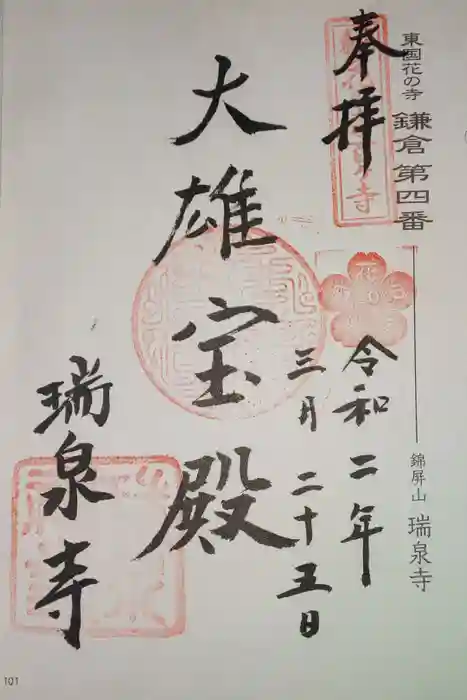 東国花の寺 鎌倉 第四番
錦屏山 瑞泉寺
奉拝
令和二年
三月二十五日
大雄宝殿
瑞泉寺
101